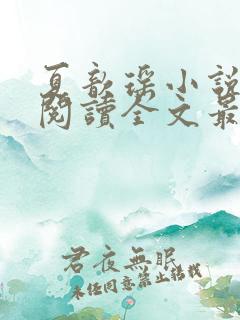 夏歆瑶小説
閱讀全文最
君夜無眠
未经同意禁止转载